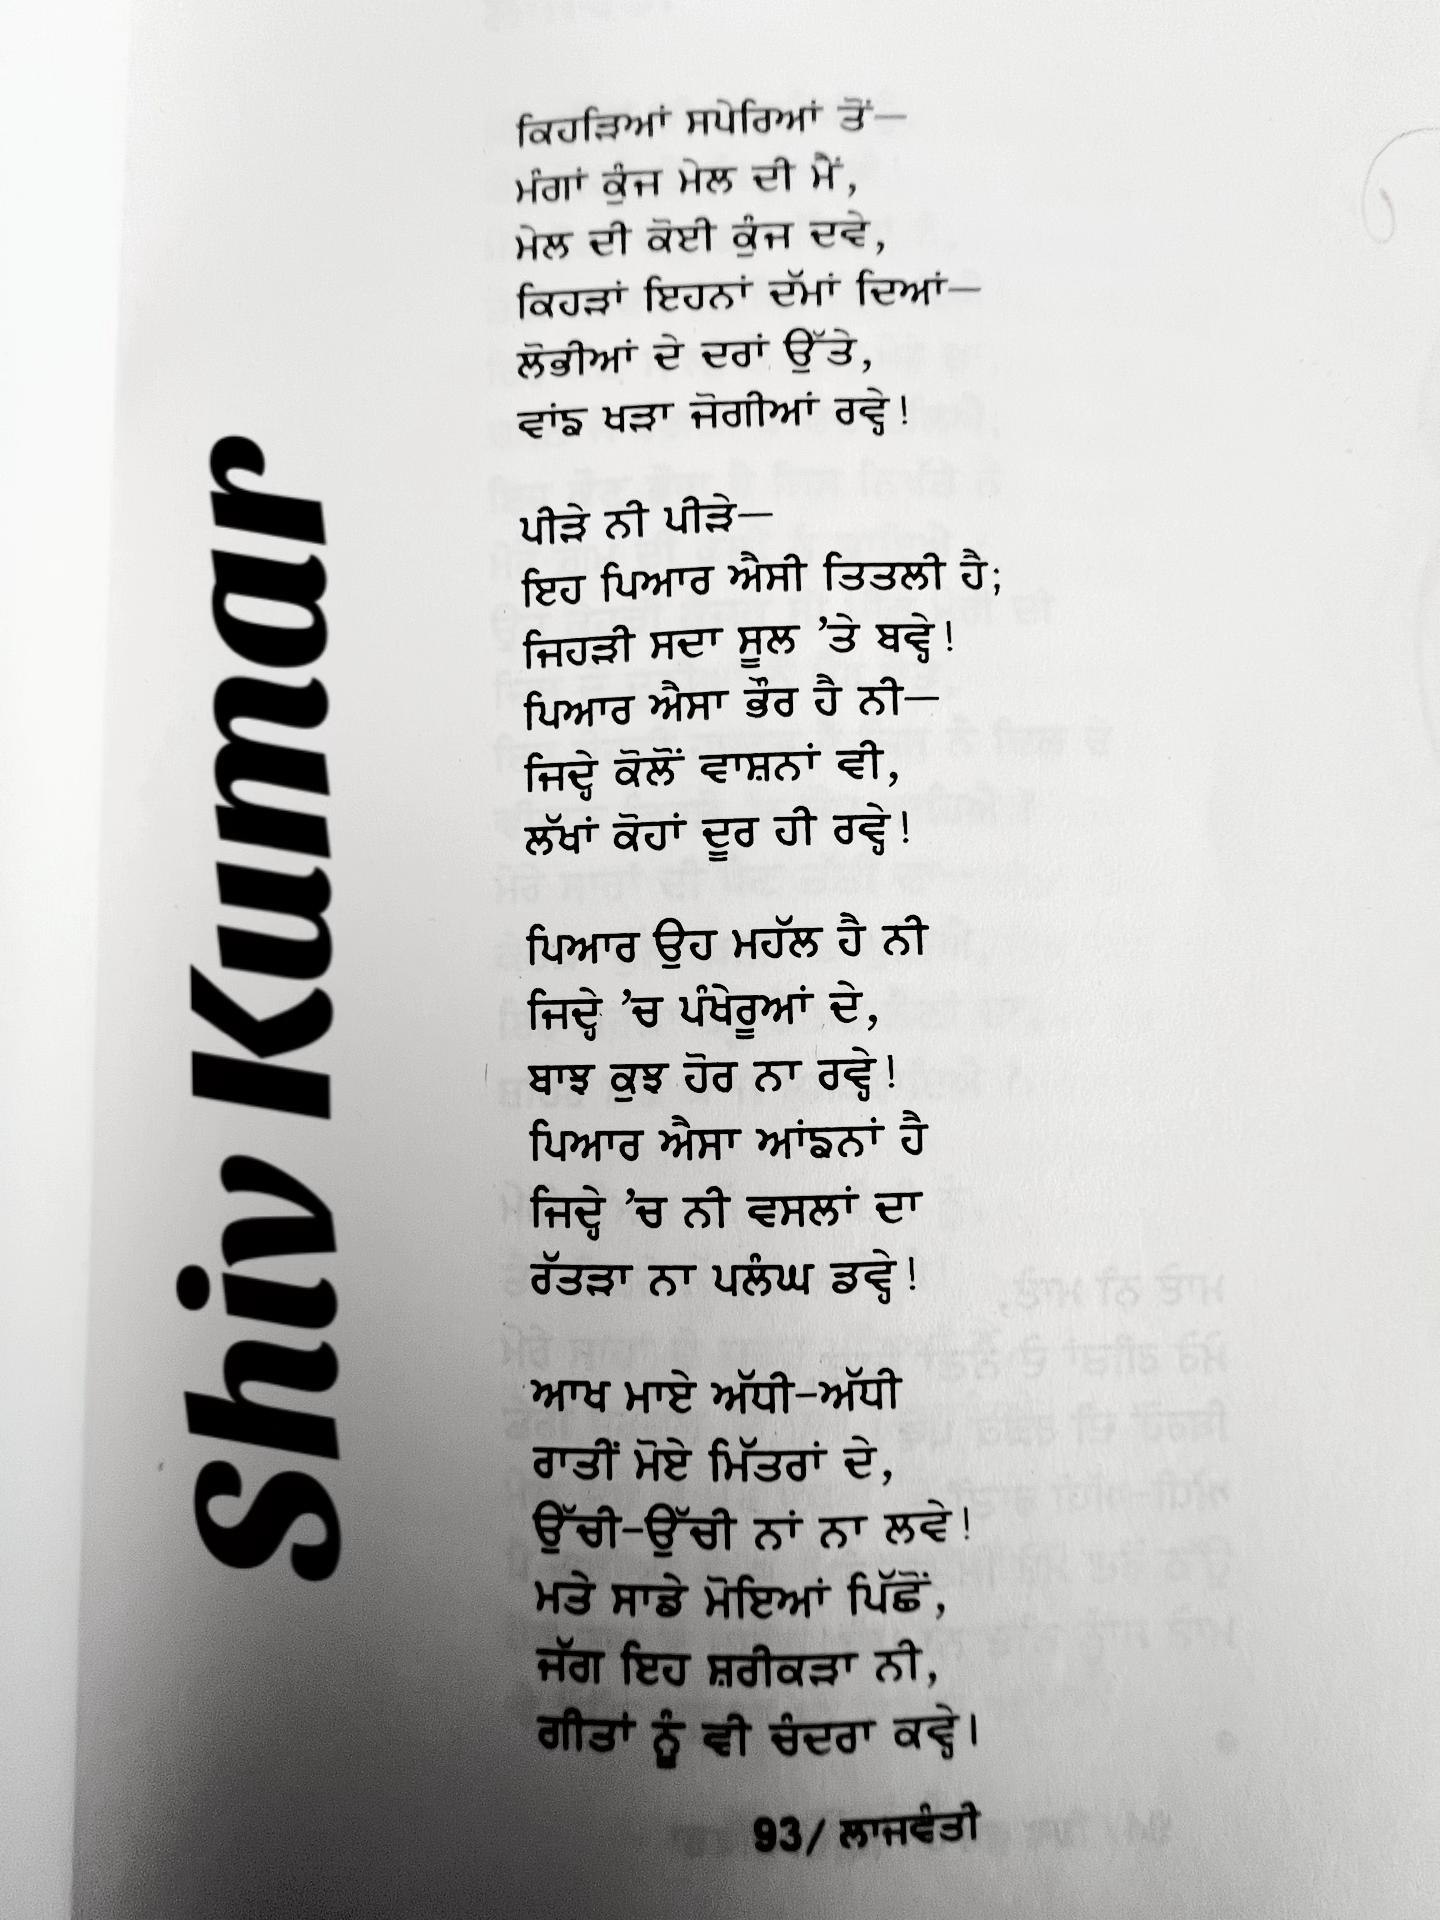 ਕਿਹੜਿਆਂ ਸਪੇਰਿਆਂ ਤੋਂ—
ਮੰਗਾਂ ਕੁੰਜ ਮੇਲ ਦੀ ਮੈਂ,
ਮੇਲ ਦੀ ਕੋਈ ਕੁੰਜ ਦਵੇ,
ਕਿਹੜਾਂ ਇਹਨਾਂ ਦੱਮਾਂ ਦਿਆਂ—
ਲੋਭੀਆਂ ਦੇ ਦਰਾਂ ਉੱਤੇ,
ਵਾਂਙ ਖੜਾ ਜੋਗੀਆਂ ਰਵ੍ਹੇ!
ਪੀੜੇ ਨੀ ਪੀੜੇ—
ਇਹ ਪਿਆਰ ਐਸੀ ਤਿਤਲੀ ਹੈ;
ਜਿਹੜੀ ਸਦਾ ਸੂਲ ’ਤੇ ਬਵ੍ਹੇ!
ਪਿਆਰ ਐਸਾ ਭੌਰ ਹੈ ਨੀ—
ਜਿਦ੍ਹੇ ਕੋਲੋਂ ਵਾਸ਼ਨਾਂ ਵੀ,
ਲੱਖਾਂ ਕੋਹਾਂ ਦੂਰ ਹੀ ਰਵ੍ਹੇ!
ਪਿਆਰ ਉਹ ਮਹੱਲ ਹੈ ਨੀ
ਜਿਦ੍ਹੇ ’ਚ ਪੰਖੇਰੂਆਂ ਦੇ,
ਬਾਝ ਕੁਝ ਹੋਰ ਨਾ ਰਵ੍ਹੇ!
ਪਿਆਰ ਐਸਾ ਆਂਙਨਾਂ ਹੈ
ਜਿਦ੍ਹੇ ’ਚ ਨੀ ਵਸਲਾਂ ਦਾ
ਰੱਤੜਾ ਨਾ ਪਲੰਘ ਡਵ੍ਹੇ!
ਆਖ ਮਾਏ ਅੱਧੀ-ਅੱਧੀ
ਰਾਤੀਂ ਮੋਏ ਮਿੱਤਰਾਂ ਦੇ,
ਉੱਚੀ-ਉੱਚੀ ਨਾਂ ਨਾ ਲਵੇ!
ਮਤੇ ਸਾਡੇ ਮੋਇਆਂ ਪਿੱਛੋਂ,
ਜੱਗ ਇਹ ਸ਼ਰੀਕੜਾ ਨੀ,
ਗੀਤਾਂ ਨੂੰ ਵੀ ਚੰਦਰਾ ਕਵ੍ਹੇ।
93/ ਲਾਜਵੰਤੀ
Shiv Kumar